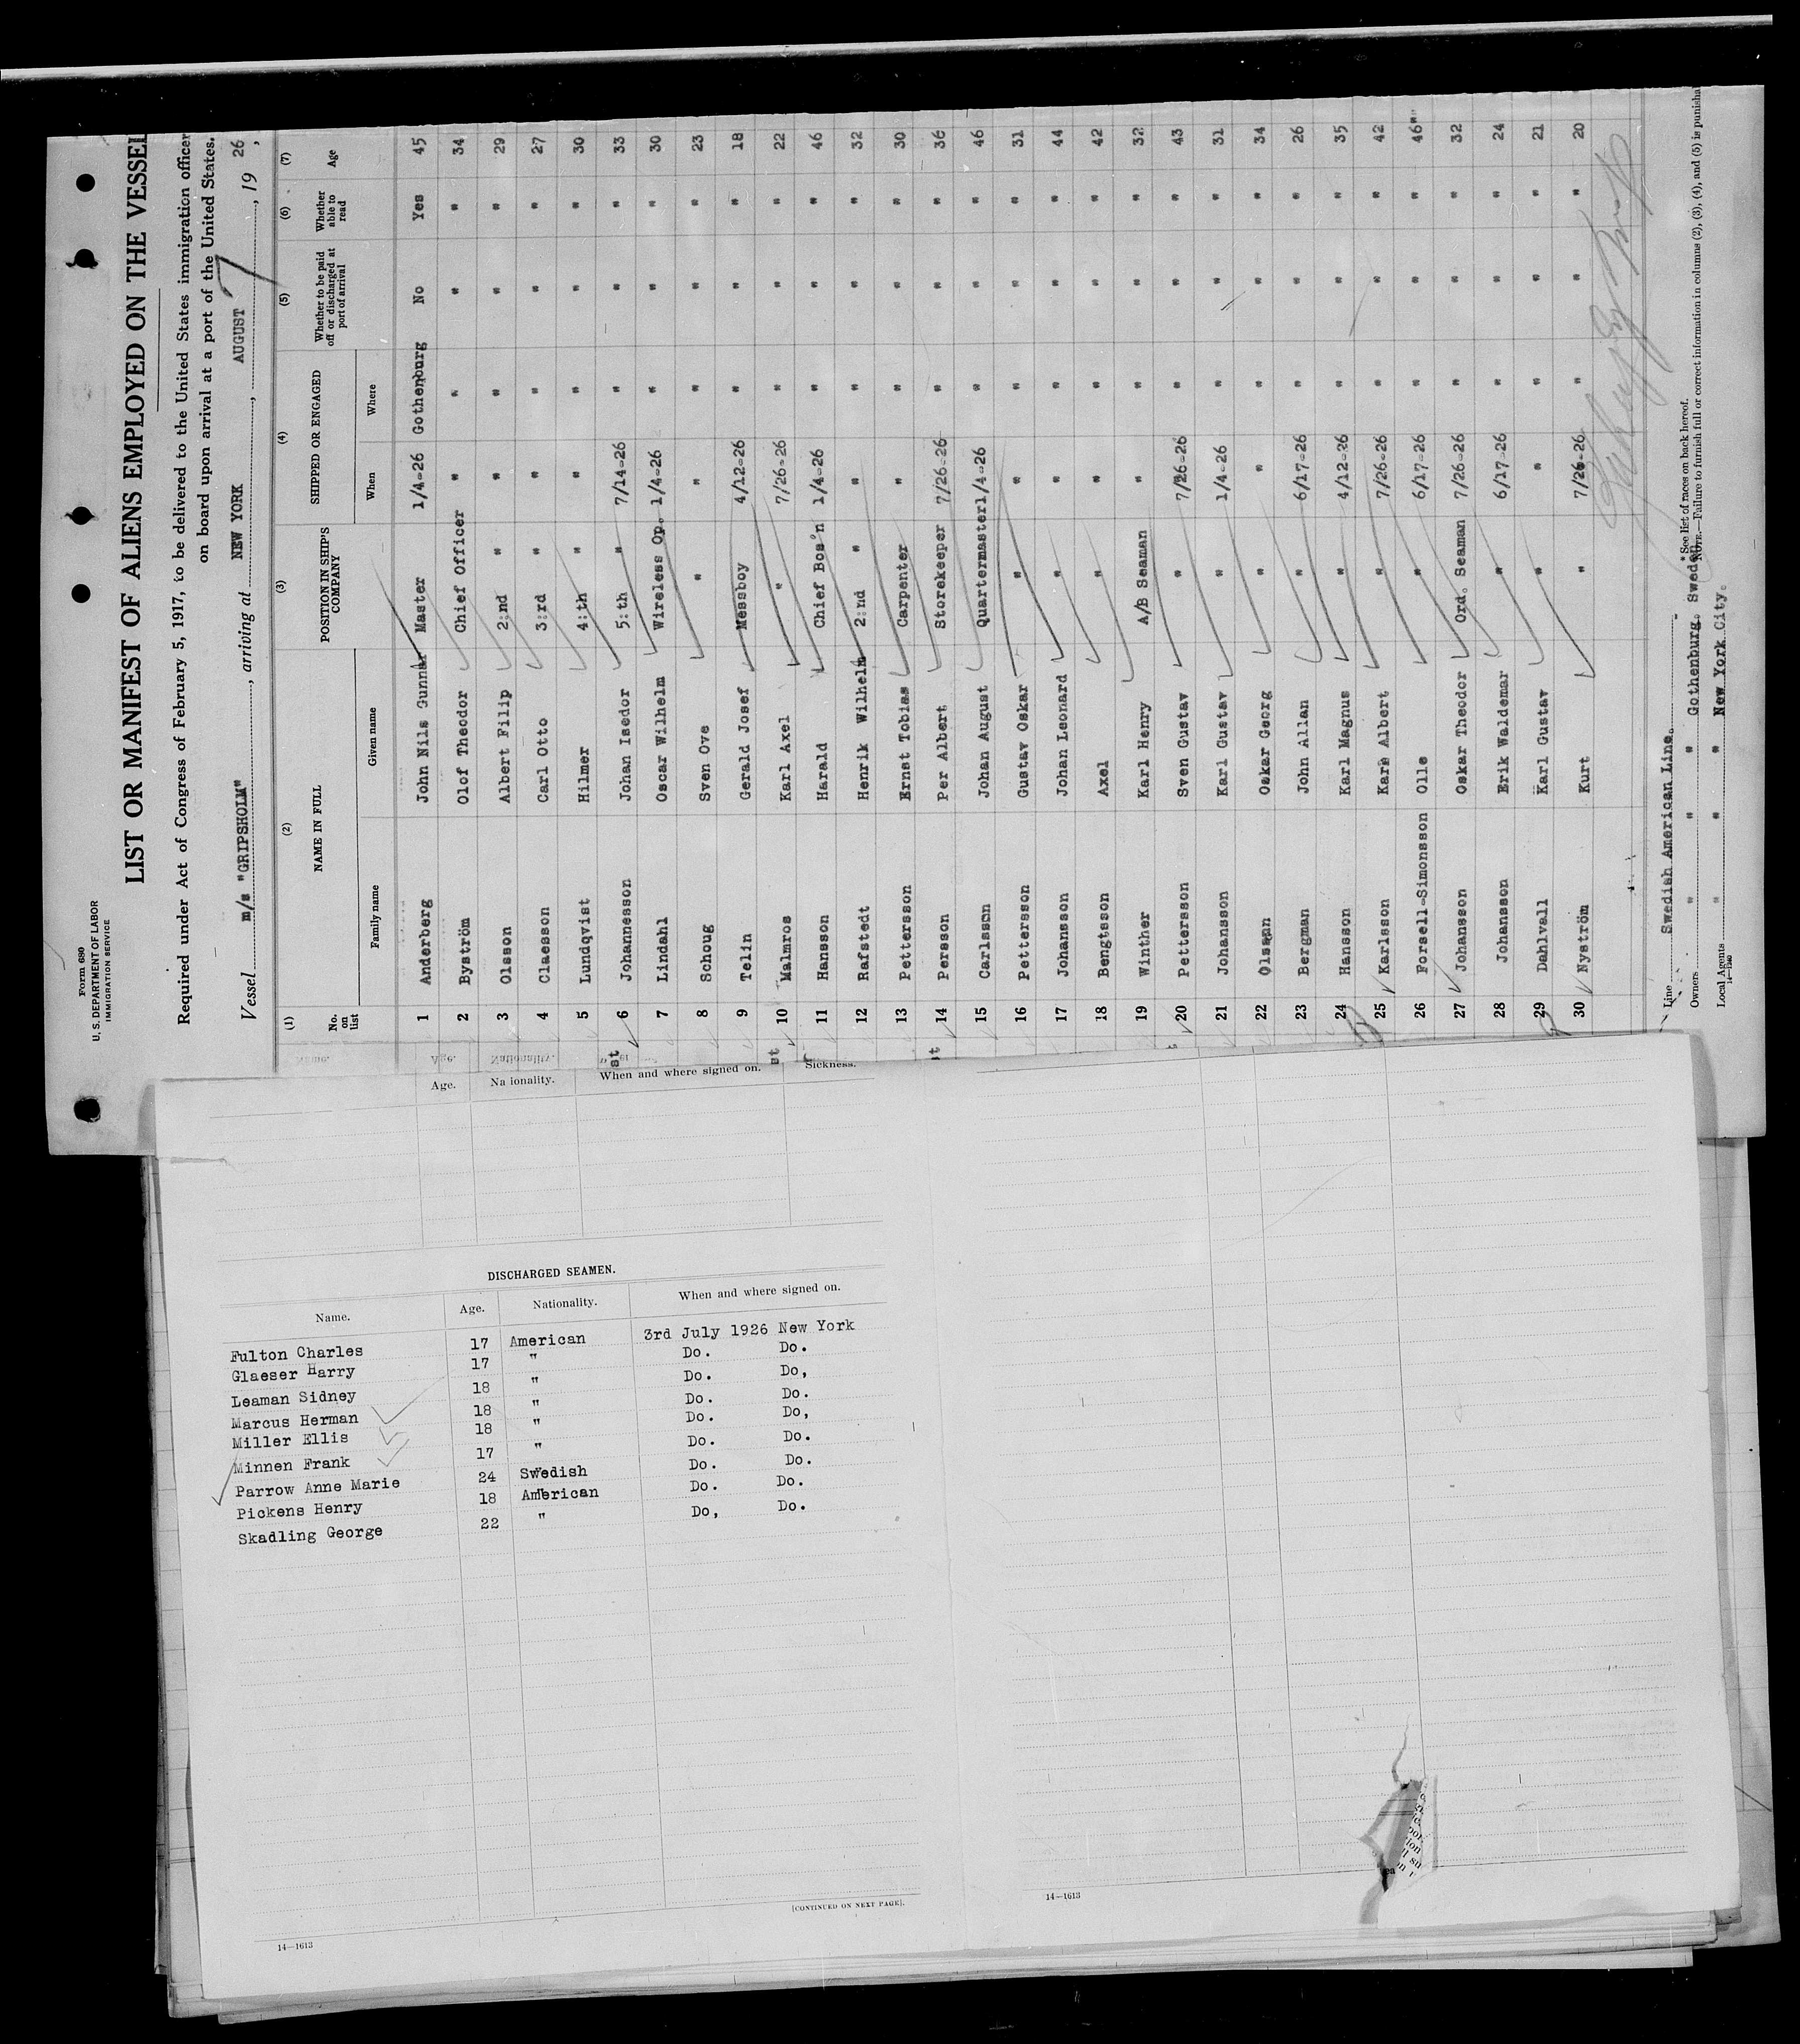 Form 680
U. S. DEPARTMENT OF LABOR
IMMIGRATION SERVICE
LIST OR MANIFEST OF ALIENS EMPLOYED ON THE VESSEL
Required under Act of Congress of February 5, 1917, to be delivered to the United States immigration officer
on board upon arrival at a port of the United States.
Vessel m/s "GRIPSHOLM", arriving at NEW YORK, AUGUST 7, 19 26,
(1) (2) (3) (4) (5) (6) (7)
No. on list NAME IN FULL POSITION IN SHIP'S COMPANY SHIPPED OR ENGAGED Whether to be paid off or discharged at port of arrival Whether able to read Age
Family name Given name When Where
1 Anderberg John Nils Gunnar Master 1/4-26 Gothenburg No Yes 45
2 Byström Olof Theodor Chief Officer " " " " 34
3 Olsson Albert Filip 2:nd " " " " " 29
4 Claesson Carl Otto 3:rd " " " " " 27
5 Lundqvist Hilmer 4:th " " " " " 30
6 Johannesson Johan Isedor 5:th " 7/14-26 " " " 33
7 Lindahl Oscar Wilhelm Wireless Op. 1/4-26 " " " 30
8 Schoug Sven Ove " " " " " 23
9 Telin Gerald Josef Messboy 4/12-26 " " " 18
10 Malmros Karl Axel " 7/26-26 " " " 22
11 Hansson Harald Chief Bos'n 1/4-26 " " " 46
12 Rafstedt Henrik Wilhelm 2:nd " " " " " 32
13 Pettersson Ernst Tobias Carpenter " " " " 30
14 Persson Per Albert Storekeeper 7/26-26 " " " 36
15 Carlsson Johan August Quartermaster 1/4-26 " " " 46
16 Pettersson Gustav Oskar " " " " " 31
17 Johansson Johan Leonard " " " " " 44
18 Bengtsson Axel " " " " " 42
19 Winther Karl Henry A/B Seaman " " " " 32
20 Pettersson Sven Gustav " 7/26-26 " " " 43
21 Johansson Karl Gustav " 1/4-26 " " " 31
22 Olsson Oskar Georg " " " " " 34
23 Bergman John Allan " 6/17-26 " " " 26
24 Hansson Karl Magnus " 4/12-26 " " " 35
25 Karlsson Karl Albert " 7/26-26 " " " 42
26 Forsell-Simonsson Olle " 6/17-26 " " " 46
27 Johansson Oskar Theodor Ord. Seaman 7/26-26 " " " 32
28 Johansson Erik Waldemar " 6/17-26 " " " 24
29 Dahlvall Karl Gustav " " " " " 21
30 Nyström Kurt " 7/26-26 " " " 20
Line Swedish American Line.
Owners " " " Gothenburg. Sweden
Local Agents " " " New York City.
14—1240
* See list of races on back hereof.
NOTE.—Failure to furnish full or correct information in columns (2), (3), (4), and (5) is punisha
st st st
Age. Na ionality. When and where signed on. Sickness.
DISCHARGED SEAMEN.
Name. Age. Nationality. When and where signed on.
Fulton Charles 17 American 3rd July 1926 New York
Glaeser Harry 17 " Do. Do.
Leaman Sidney 18 " Do. Do,
Marcus Herman 18 " Do. Do.
Miller Ellis 18 " Do. Do,
Minnen Frank 17 " Do. Do.
Parrow Anne Marie 24 Swedish Do. Do.
Pickens Henry 18 American Do. Do.
Skadling George 22 " Do, Do.
[CONTINUED ON NEXT PAGE].
14—1613
14—1613